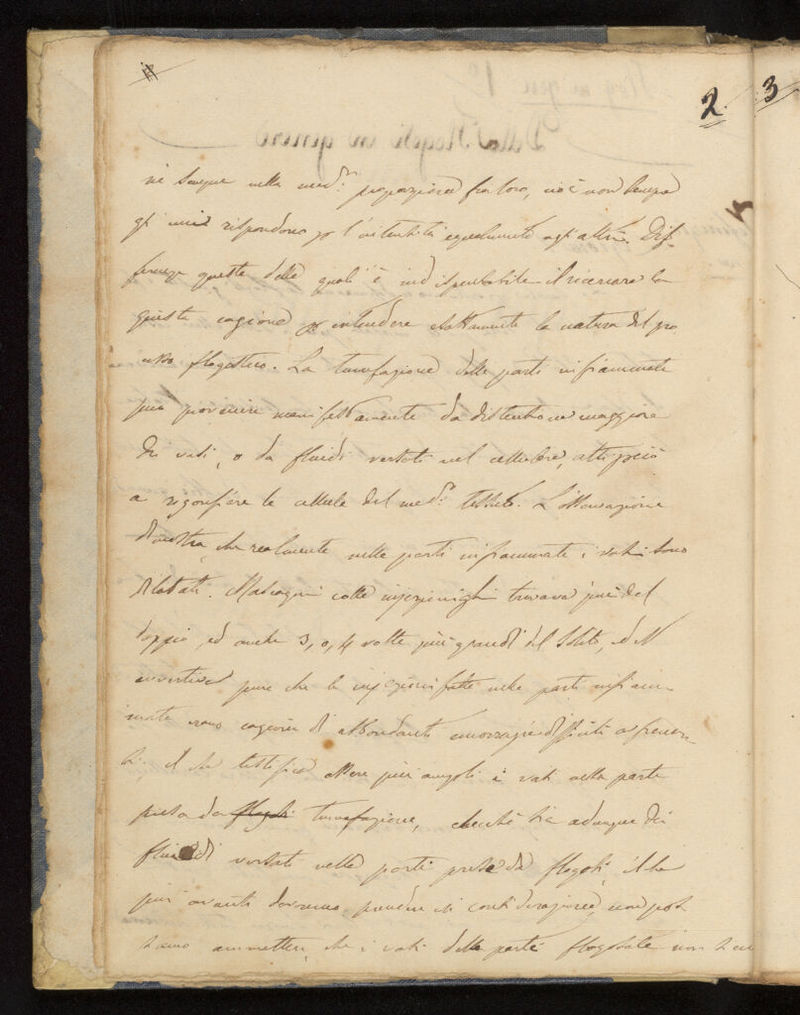 2 3
ne sempre nella med.ma proporzione fra loro, cioè non sempre
gl' uni rispondono p l'intensità egualmente agl'altri. Dif
ferenze queste delle quali è indispensabile il ricercare la
giusta cagione p intendere esattamente la natura del pro
cesso flogistico. La tumefazione delle parti infiammate
può provenire manifestamente da distensione maggiore
dei vasi, o da fluidi versati nel cellulare, atti perciò
a rigonfiare le cellule del med.o tessuto. L'osservazione
dimostra, che realmente nelle parti infiammate i vasi sono
dilatati. Mascagni colle injezioni gli trovava più del
doppio, ed anche 3, o, 4 volte più grandi del solito, ed
avvertiva pure che le injezioni fatte nelle parti infiam-
mate erano cagioni di abbondanti emorragie difficili a frenar-
si. Il che testifica essere più ampli i vasi nella parte
presa da flogosi tumefazione, checchè sia adunque dei
fluidi versati nelle parti prese da flogosi, il che
più avanti dovremo prendere in considerazione, non pos
siamo ammettere, che i vasi delle parti flogosate non sien